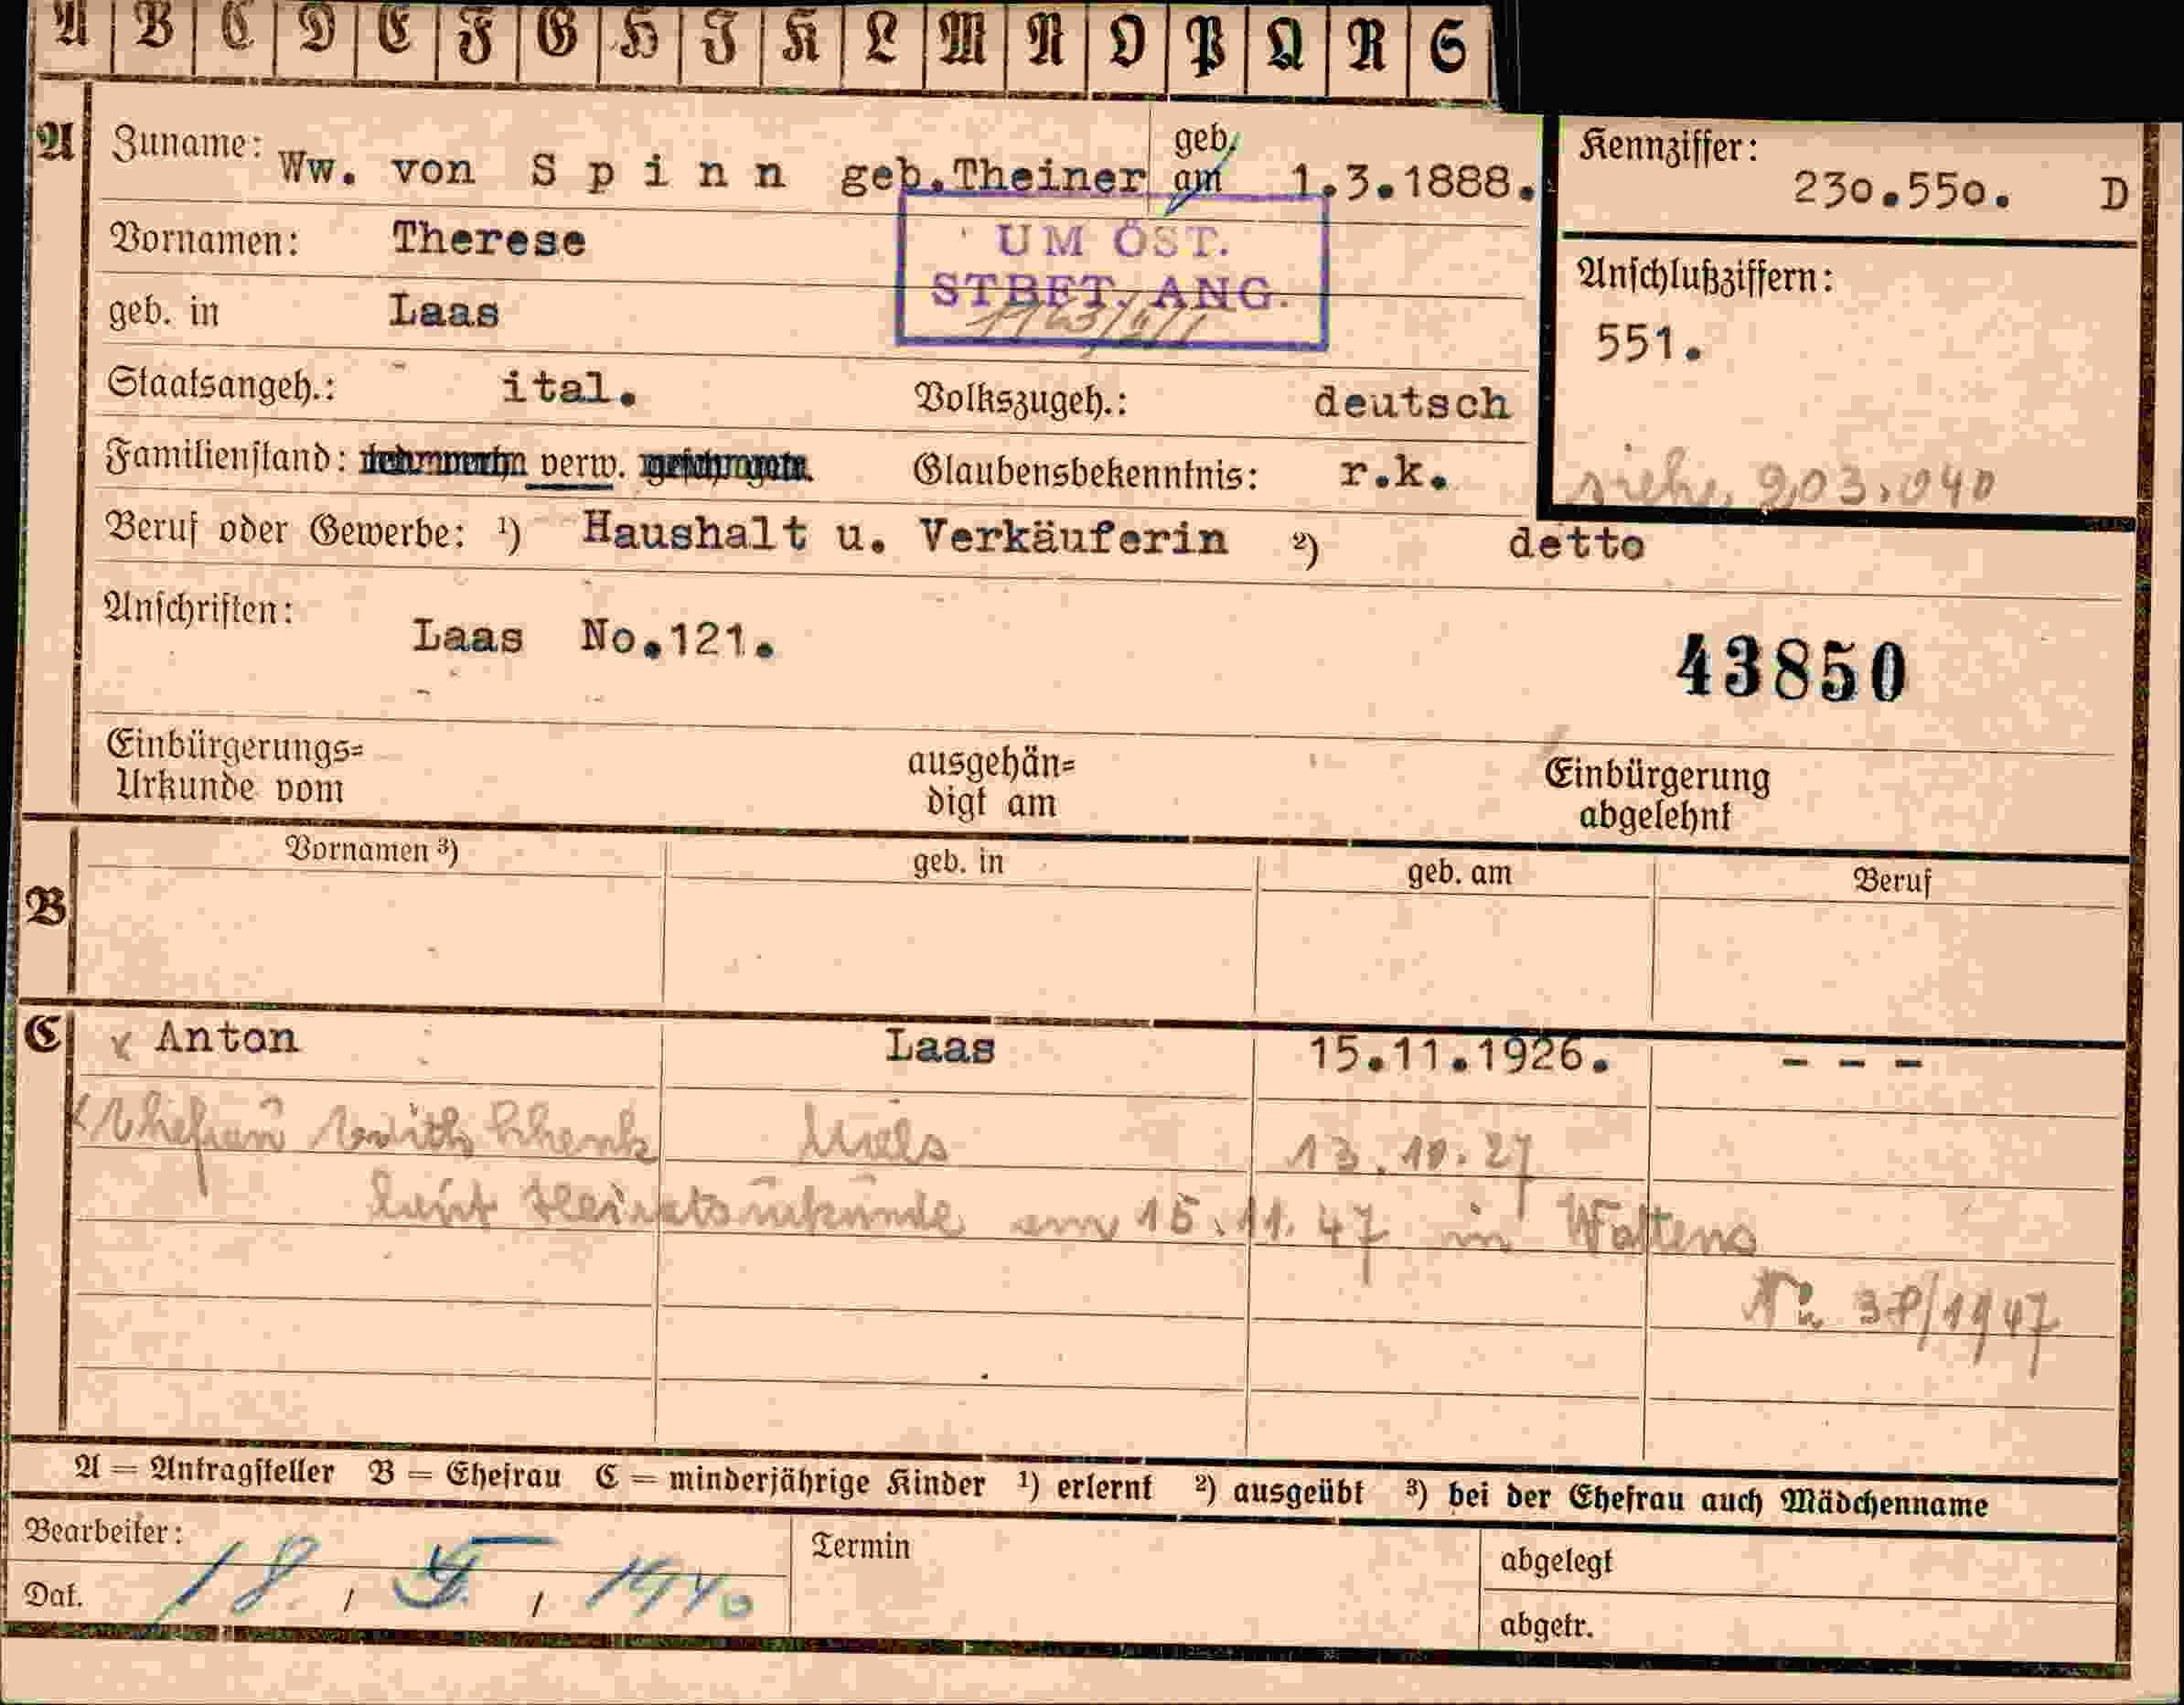 A B C D E F G H I K L M N O P Q R S
A Zuname: Ww. von S p i n n geb.Theiner geb. am 1.3.1888.
Kennziffer:
230.550. D
Vornamen: Therese
UM ÖST.
STBET. ANG.
geb. in Laas
Anschlußziffern:
551.
siehe 203.040
Staatsangeh.: ital. Volkszugeh.: deutsch
Familienstand: verw. Glaubensbekenntnis: r.k.
Beruf oder Gewerbe: ¹) Haushalt u. Verkäuferin ²) detto
Anschriften: Laas No.121.
43850
Einbürgerungs=
Urkunde vom
ausgehän=
digt am
Einbürgerung
abgelehnt
B Vornamen ³) geb. in geb. am Beruf
C Anton Laas 15.11.1926. - - -
Ehefrau Schenk Mals 13.10.27
laut Heiratsurkunde am 15.11.47 in Wattens
No 38/1947
A = Antragsteller B = Ehefrau C = minderjährige Kinder ¹) erlernt ²) ausgeübt ³) bei der Ehefrau auch Mädchenname
Bearbeiter:
Termin
abgelegt
Dat. 18 / / 1940
abgetr.